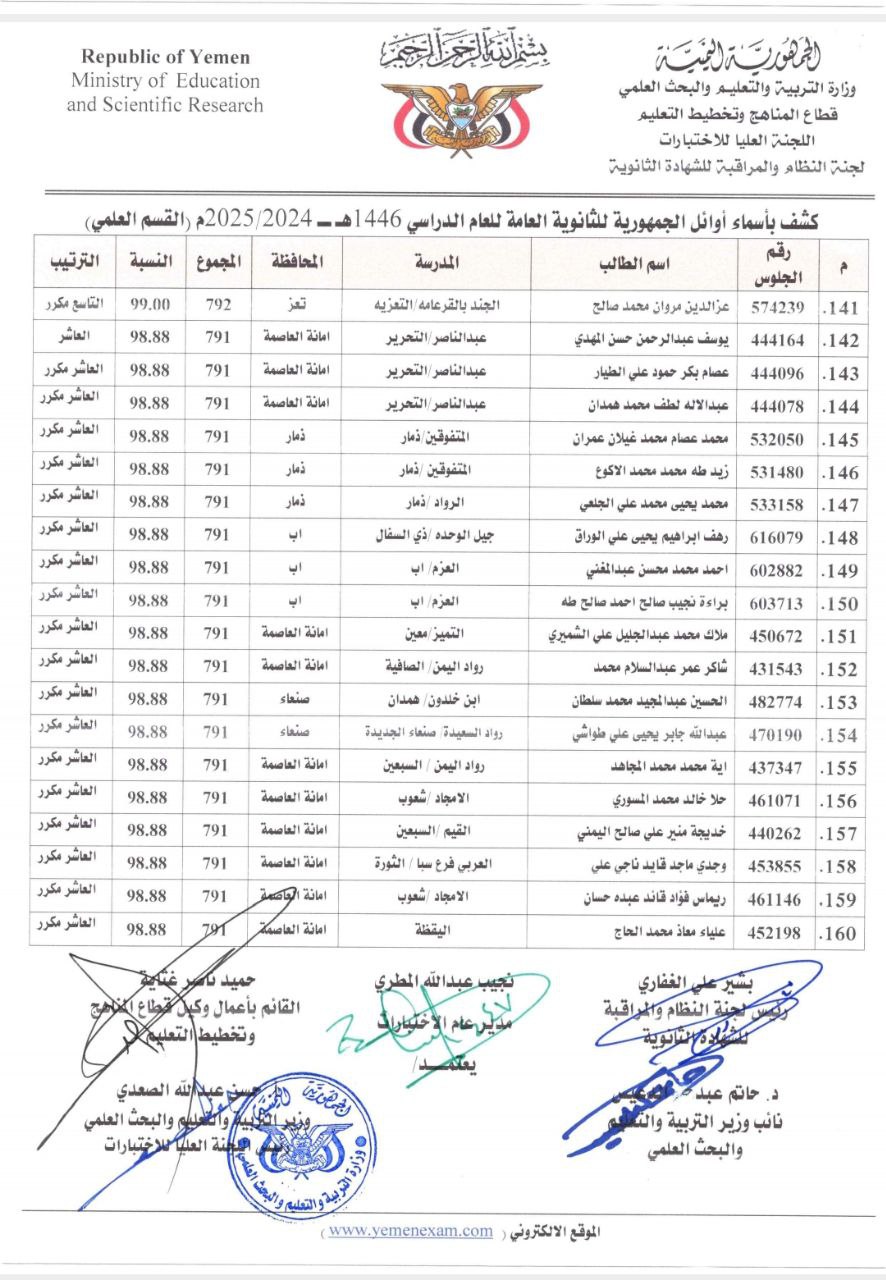 Republic of Yemen
Ministry of Education
and Scientific Research
بسم الله الرحمن الرحيم
الجمهورية اليمنية
وزارة التربية والتعليم والبحث العلمي
قطاع المناهج وتخطيط التعليم
اللجنة العليا للاختبارات
لجنة النظام والمراقبة للشهادة الثانوية
كشف بأسماء أوائل الجمهورية للثانوية العامة للعام الدراسي 1446هـ ــ 2025/2024م (القسم العلمي)
م رقم الجلوس اسم الطالب المدرسة المحافظة المجموع النسبة الترتيب
141. 574239 عزالدين مروان محمد صالح الجند بالقرعامه/التعزيه تعز 792 99.00 التاسع مكرر
142. 444164 يوسف عبدالرحمن حسن المهدي عبدالناصر/التحرير امانة العاصمة 791 98.88 العاشر
143. 444096 عصام بكر حمود علي الطيار عبدالناصر/التحرير امانة العاصمة 791 98.88 العاشر مكرر
144. 444078 عبدالاله لطف محمد همدان عبدالناصر/التحرير امانة العاصمة 791 98.88 العاشر مكرر
145. 532050 محمد عصام محمد غيلان عمران المتفوقين/ذمار ذمار 791 98.88 العاشر مكرر
146. 531480 زيد طه محمد محمد الاكوع المتفوقين/ذمار ذمار 791 98.88 العاشر مكرر
147. 533158 محمد يحيى محمد علي الجلعي الرواد/ذمار ذمار 791 98.88 العاشر مكرر
148. 616079 رهف ابراهيم يحيى علي الوراق جيل الوحده/ذي السفال اب 791 98.88 العاشر مكرر
149. 602882 احمد محمد محسن عبدالمغني العزم/اب اب 791 98.88 العاشر مكرر
150. 603713 براءة نجيب صالح احمد صالح طه العزم/اب اب 791 98.88 العاشر مكرر
151. 450672 ملاك محمد عبدالجليل علي الشميري التميز/معين امانة العاصمة 791 98.88 العاشر مكرر
152. 431543 شاكر عمر عبدالسلام محمد رواد اليمن/الصافية امانة العاصمة 791 98.88 العاشر مكرر
153. 482774 الحسين عبدالمجيد محمد سلطان ابن خلدون/همدان صنعاء 791 98.88 العاشر مكرر
154. 470190 عبدالله جابر يحيى علي طواشي رواد السعيدة/صنعاء الجديدة صنعاء 791 98.88 العاشر مكرر
155. 437347 اية محمد محمد المجاهد رواد اليمن/السبعين امانة العاصمة 791 98.88 العاشر مكرر
156. 461071 حلا خالد محمد المسوري الامجاد/شعوب امانة العاصمة 791 98.88 العاشر مكرر
157. 440262 خديجة منير علي صالح اليمني القيم/السبعين امانة العاصمة 791 98.88 العاشر مكرر
158. 453855 وجدي ماجد قايد ناجي علي العربي فرع سبا/الثورة امانة العاصمة 791 98.88 العاشر مكرر
159. 461146 ريماس فؤاد قائد عبده حسان الامجاد/شعوب امانة العاصمة 791 98.88 العاشر مكرر
160. 452198 علياء معاذ محمد الحاج اليقظة امانة العاصمة 791 98.88 العاشر مكرر
بشير علي الغفاري
رئيس لجنة النظام والمراقبة
للشهادة الثانوية
نجيب عبدالله المطري
مدير عام الاختبارات
يعتمـــد/
حميد ناصر
القائم بأعمال وكيل قطاع المناهج
وتخطيط التعليم
د. حاتم
نائب وزير التربية والتعليم
والبحث العلمي
حسن عبدالله الصعدي
وزير التربية والتعليم والبحث العلمي
رئيس اللجنة العليا للاختبارات
الجمهورية اليمنية
وزارة التربية والتعليم والبحث العلمي
الموقع الالكتروني ( www.yemenexam.com )